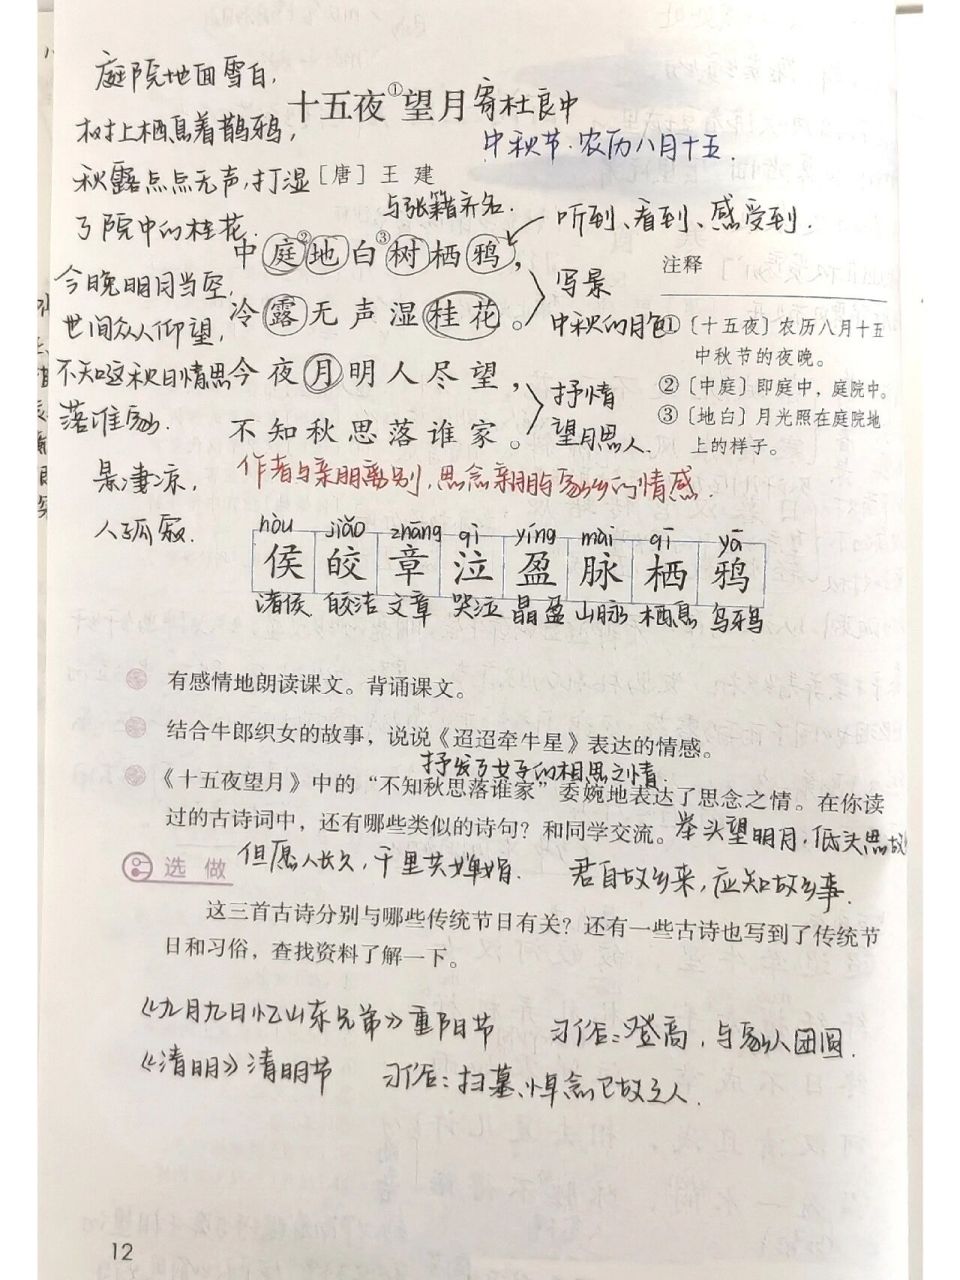 庭院地面雪白,
十五夜①望月寄杜良中
树上栖息着鹊鸦,
中秋节·农历八月十五.
秋露点点无声,打湿
[唐]王 建
与张籍齐名.
了院中的桂花.
听到、看到、感受到.
中庭②地白③树栖鸦,
注释
今晚明月当空,
写景
冷露无声湿桂花。
世间众人仰望,
中秋的月色
①〔十五夜〕农历八月十五
中秋节的夜晚。
不知这秋日情思
今夜月明人尽望,
②〔中庭〕即庭中,庭院中。
抒情
落谁家.
③〔地白〕月光照在庭院地
上的样子。
不知秋思落谁家。
望月思人.
景凄凉,
作者与亲朋离别,思念亲朋与家乡的情感.
人孤寂.
hòu jiǎo zhāng qì yíng mài qī yā
侯 皎 章 泣 盈 脉 栖 鸦
诸侯 皎洁 文章 哭泣 晶盈 山脉 栖息 乌鸦
有感情地朗读课文。背诵课文。
结合牛郎织女的故事,说说《迢迢牵牛星》表达的情感。
抒发了女子的相思之情.
《十五夜望月》中的“不知秋思落谁家”委婉地表达了思念之情。在你读
过的古诗词中,还有哪些类似的诗句?和同学交流。
举头望明月,低头思故
但愿人长久,千里共婵娟.
君自故乡来,应知故乡事.
选做
这三首古诗分别与哪些传统节日有关?还有一些古诗也写到了传统节
日和习俗,查找资料了解一下。
《九月九日忆山东兄弟》重阳节 习俗:登高,与家人团圆.
《清明》清明节 习俗:扫墓、悼念已故之人.
12